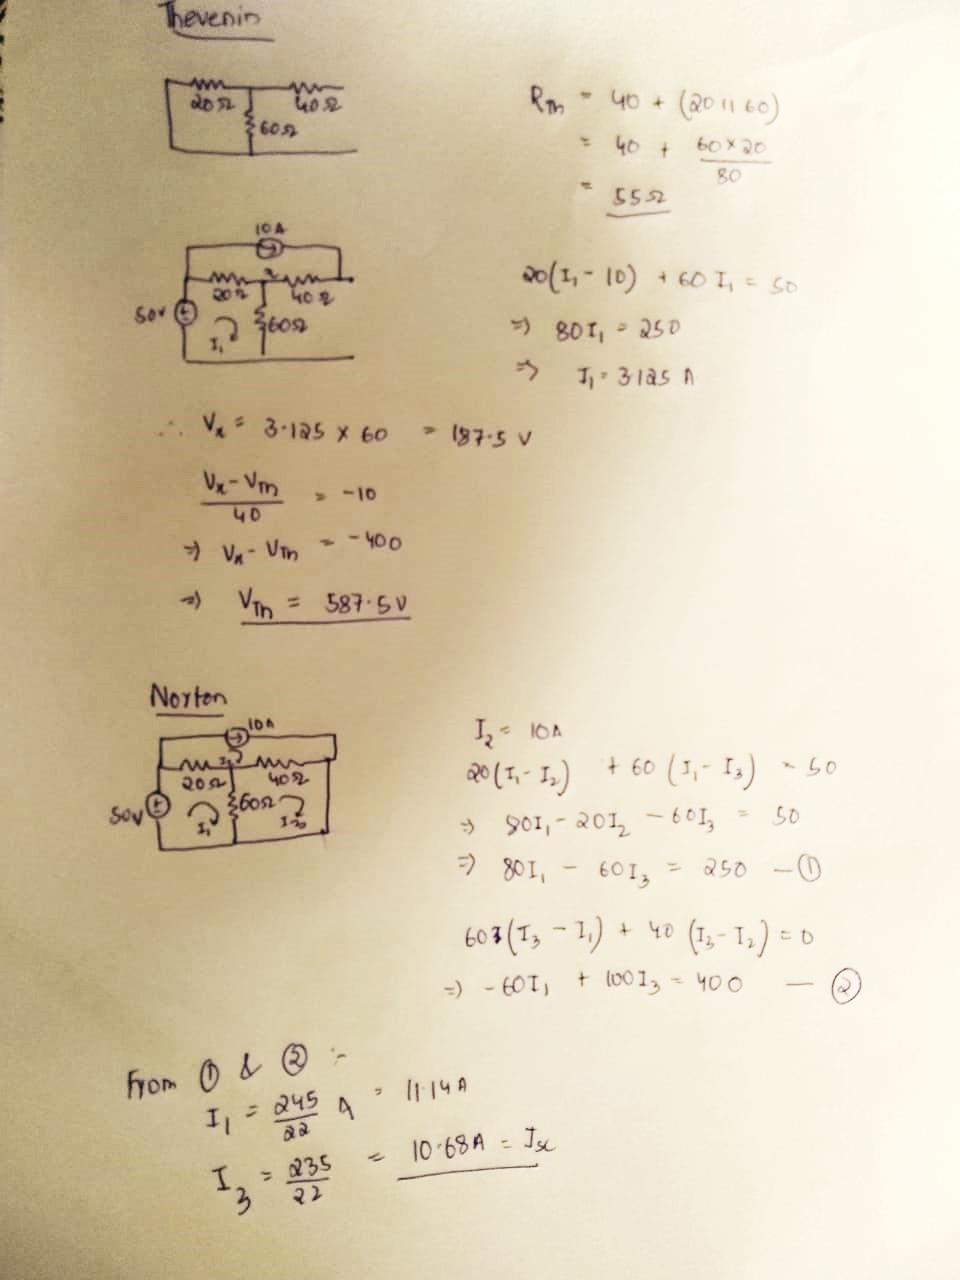 Thevenin
20Ω
40Ω
60Ω
R_Th = 40 + (20 11 60)
= 40 + 60×20
80
= 55Ω
10A
20Ω
x
40Ω
50V
I₁
60Ω
20(I₁ - 10) + 60 I₁ = 50
⇒ 80I₁ = 250
⇒ I₁ = 3.125 A
∴ Vx = 3.125 × 60 = 187.5 V
Vx - VTh
40
= -10
⇒ Vx - VTh = -400
⇒ VTh = 587.5V
Norton
10A
I₂
20Ω
40Ω
50V
I₁
60Ω
I₃
I₂ = 10A
20(I₁ - I₂) + 60 (I₁ - I₃) = 50
⇒ 80I₁ - 20I₂ - 60I₃ = 50
⇒ 80I₁ - 60I₃ = 250 — ①
60(I₃ - I₁) + 40 (I₃ - I₂) = 0
⇒ -60I₁ + 100I₃ = 400 — ②
From ① & ② :-
I₁ = 245
22
A = 11.14A
I₃ = 235
22
= 10.68A = Isc